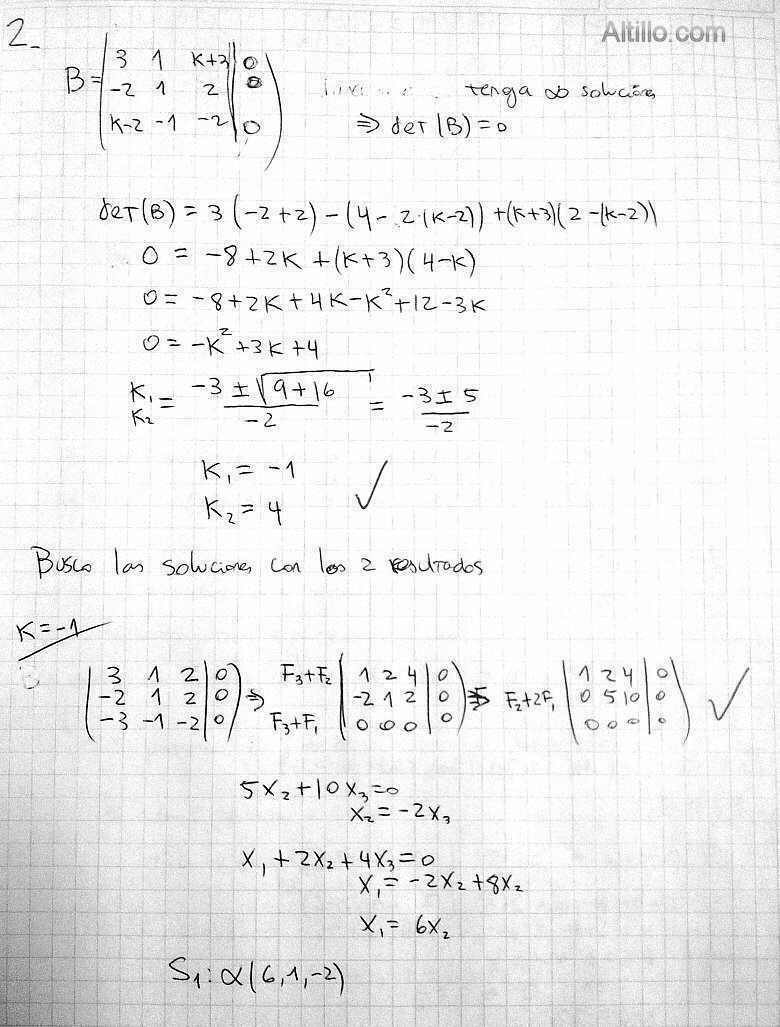 Altillo.com
2_
B = ( 3 1 k+3 | 0
-2 1 2 | 0
k-2 -1 -2 | 0 )
tenga ∞ solución
⇒ det(B) = 0
det(B) = 3(-2+2) - (4 - 2·(k-2)) + (k+3)(2-(k-2))
0 = -8+2k + (k+3)(4-k)
0 = -8+2k+4k-k²+12-3k
0 = -k²+3k+4
k₁ k₂ = (-3 ± √(9+16)) / -2 = (-3 ± 5) / -2
k₁ = -1
k₂ = 4 ✓
Busco las soluciones con los 2 resultados
k=-1
( 3 1 2 | 0 ) ⇒ F₃+F₂ ( 1 2 4 | 0 ) ⇒ F₂+2F₁ ( 1 2 4 | 0 ) ✓
( -2 1 2 | 0 ) ( -2 1 2 | 0 ) ( 0 5 10 | 0 )
( -3 -1 -2 | 0 ) F₃+F₁ ( 0 0 0 | 0 ) ( 0 0 0 | 0 )
5x₂+10x₃=0
x₂=-2x₃
x₁+2x₂+4x₃=0
x₁=-2x₂+8x₂
x₁= 6x₂
S₁: α(6,1,-2)